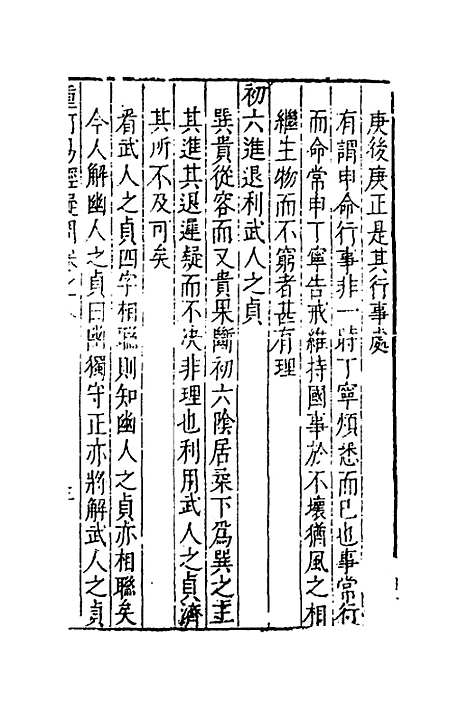 庚後庚正是其行事處
有謂申命行事非一時丁寧煩悉而已也事常行
而命常申丁寧告戒維持國事於不壞猶風之相
繼生物而不窮者甚有理
初六進退利武人之貞
巽貴從容而又貴果斷初六陰居巽下爲巽之主
其進其退遲疑而不決非理也利用武人之貞濟
其所不及可矣
看武人之貞四字相聯則知幽人之貞亦相聯矣
今人解幽人之貞曰幽獨守正亦將解武人之貞
重訂易經疑問卷之八